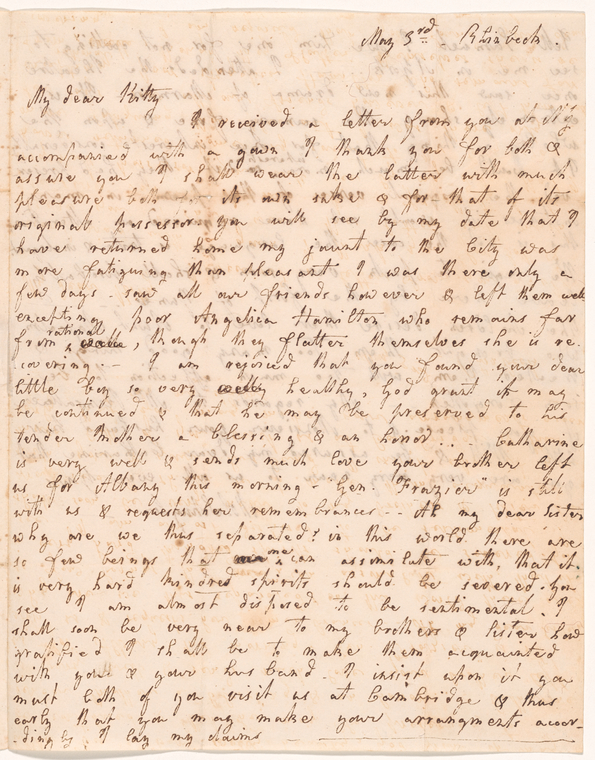 May 3rd. Rhinbeck.
My dear Kitty
I received a letter from you at
accompanied with a gown I thank you for both &
assure you I shall wear the latter with much
pleasure both its own sake & for that of its
original possessor you will see by my date that I
have returned home my jaunt to the City was
more fatiguing than pleasant I was there only a
few days - saw all our friends however & left them well
excepting poor Angelica Hamilton who remains far
from rational, though they flatter themselves she is re-
covering. - I am rejoiced that you found your dear
little boy so very healthy, God grant it may
be continued & that he may be preserved to his
tender Mother a blessing & an honor ... Catharine
is very well & sends much love your brother left
us for Albany this morning - Gen. "Frazier" is still
with us & requests her remembrances - Ah my dear Sister
why are we thus separated? in this world there are
so few beings that one can assimilate with, that it
is very hard kindred spirits should be severed. You
see I am almost disposed to be sentimental. I
shall soon be very near to my brothers & Sister how
gratified I shall be to make them acquainted
with you & your husband - I insist upon it you
must both of you visit us at Cambridge & thus
early that you may make your arrangments accor-
-dingly I lay my claims